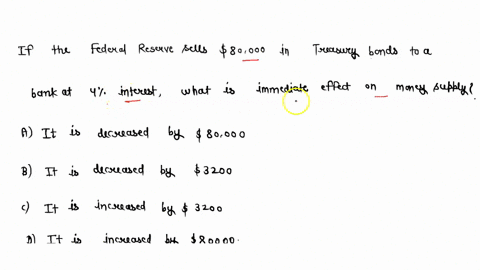 If the Federal Reserve sells $80,000 in Treasury bonds to a
bank at 4% interest, what is immediate effect on money supply?
A) It is decreased by $80,000
B) It is decreased by $3200
c) It is increased by $3200
D) It is increased by $80000.